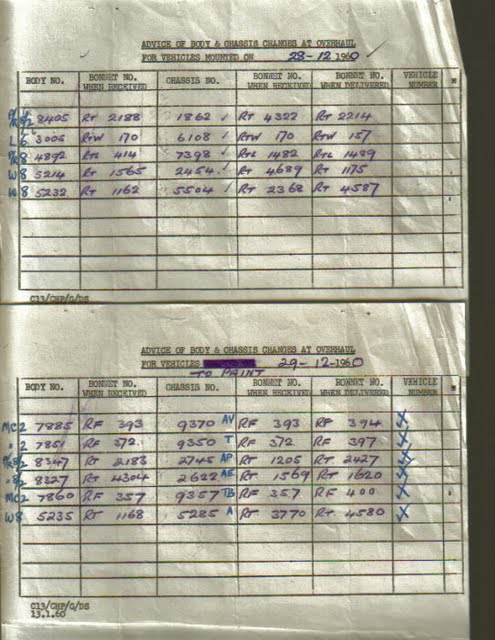 ADVICE OF BODY & CHASSIS CHANGES AT OVERHAUL
FOR VEHICLES MOUNTED ON 28-12-1960
BODY NO. BONNET NO. WHEN RECEIVED CHASSIS NO. BONNET NO. WHEN RECEIVED BONNET NO. WHEN DELIVERED VEHICLE NUMBER
8405 RT 2188 1862 ✓ RT 4322 RT 2214
L6 3005 RTW 170 6108 ✓ RTW 170 RTW 157
4892 RTL 414 7398 ✓ RTL 1482 RTL 1489
W8 5214 RT 1565 2454 ✓ RT 4689 RT 1175
W8 5232 RT 1162 5504 ✓ RT 2368 RT 4587
C13/CHP/G/DS
ADVICE OF BODY & CHASSIS CHANGES AT OVERHAUL
FOR VEHICLES 29-12-1960
TO PAINT
BODY NO. BONNET NO. WHEN RECEIVED CHASSIS NO. BONNET NO. WHEN RECEIVED BONNET NO. WHEN DELIVERED VEHICLE NUMBER
MC2 7885 RF 393 9370 AV RF 393 RF 394
" 2 7851 RF 372 9350 T RF 372 RF 397
8347 RT 2183 2745 AP RT 1205 RT 2427
8327 RT 4304 2622 AE RT 1569 RT 1620
MC2 7860 RF 357 9357 TB RF 357 RF 400
W8 5235 RT 1168 5285 A RT 3770 RT 4580
C13/CHP/G/DS
13.1.60